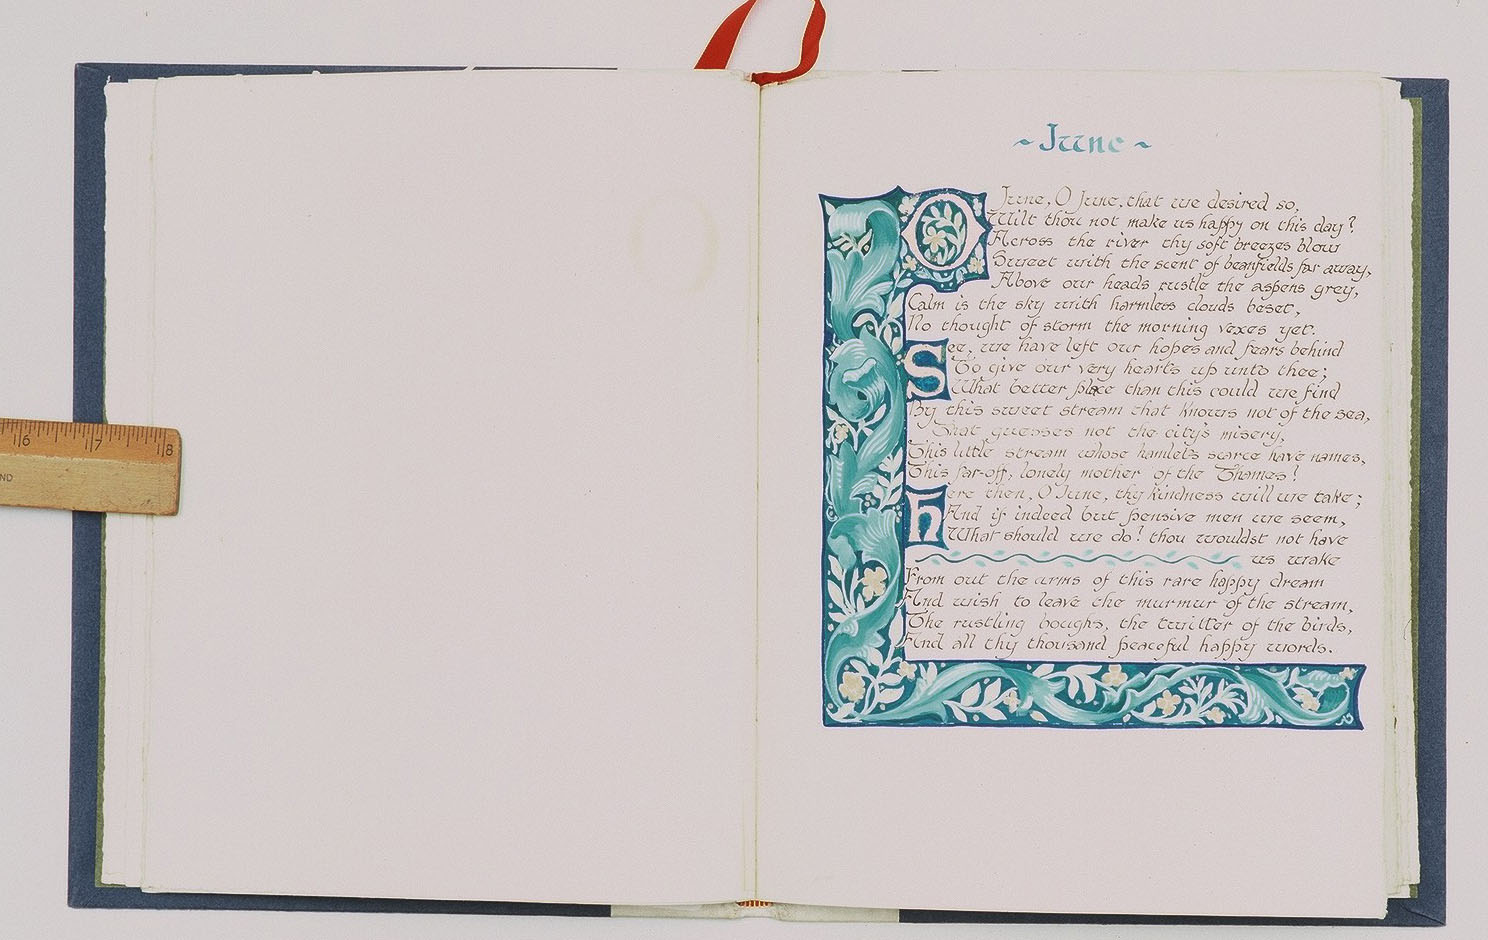 16 17 18
ND
~ June ~
O June, O June, that we desired so,
Wilt thou not make us happy on this day?
Across the river thy soft breezes blow
Sweet with the scent of beanfields far away,
Above our heads rustle the aspens grey,
Calm is the sky with harmless clouds beset,
No thought of storm the morning vexes yet.
See, we have left our hopes and fears behind
To give our very hearts up unto thee;
What better place than this could we find
By this sweet stream that knows not of the sea,
That guesses not the city's misery,
This little stream whose hamlets scarce have names,
This far-off, lonely mother of the Thames!
Here then, O June, thy kindness will we take;
And if indeed but pensive men we seem,
What should we do? thou wouldst not have
us wake
From out the arms of this rare happy dream
And wish to leave the murmur of the stream,
The rustling boughs, the twitter of the birds,
And all thy thousand peaceful happy words.